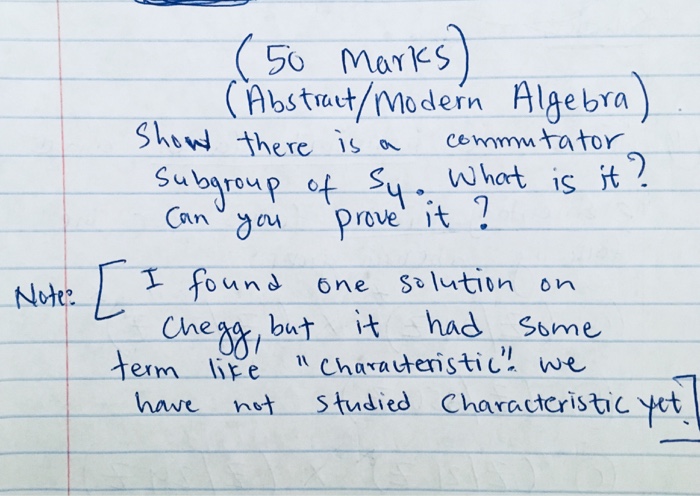 (50 Marks)
(Abstract/Modern Algebra)
Show there is a commutator
subgroup of S4. What is it?
Can you prove it?
Note: [I found one solution on
Chegg, but it had some
term like "characteristic". we
have not studied characteristic yet.]